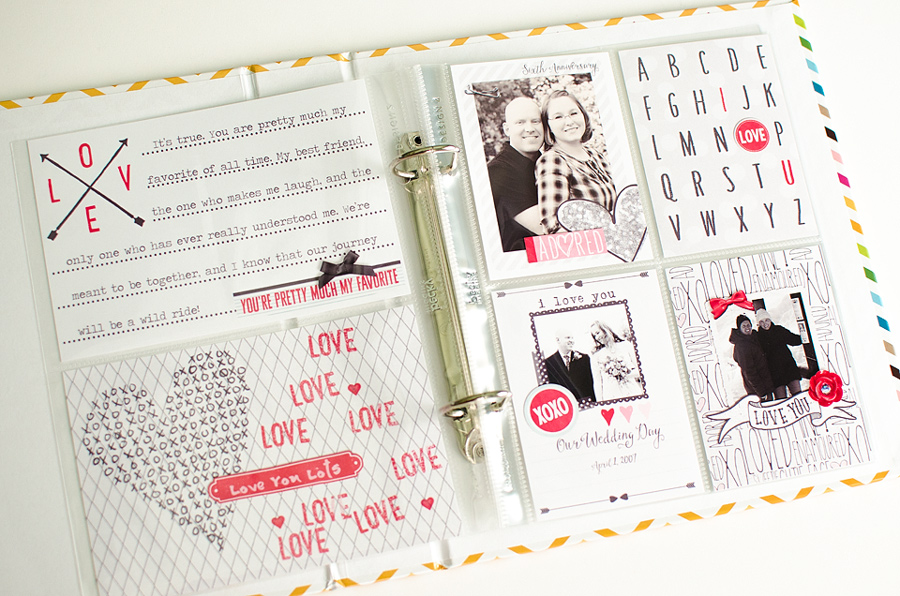 L O V E
It's true. You are pretty much my
favorite of all time. My best friend,
the one who makes me laugh, and the
only one who has ever really understood me. We're
meant to be together, and I know that our journey
will be a wild ride!
YOU'RE PRETTY MUCH MY FAVORITE
LOVE
LOVE
LOVE
LOVE
LOVE
Love You Lots
LOVE
LOVE
LOVE
Sixth Anniversary
ADORED
A B C D E
F G H I J K
L M N LOVE P
Q R S T U
V W X Y Z
i love you
XOXO
Our Wedding Day
LOVE YOU